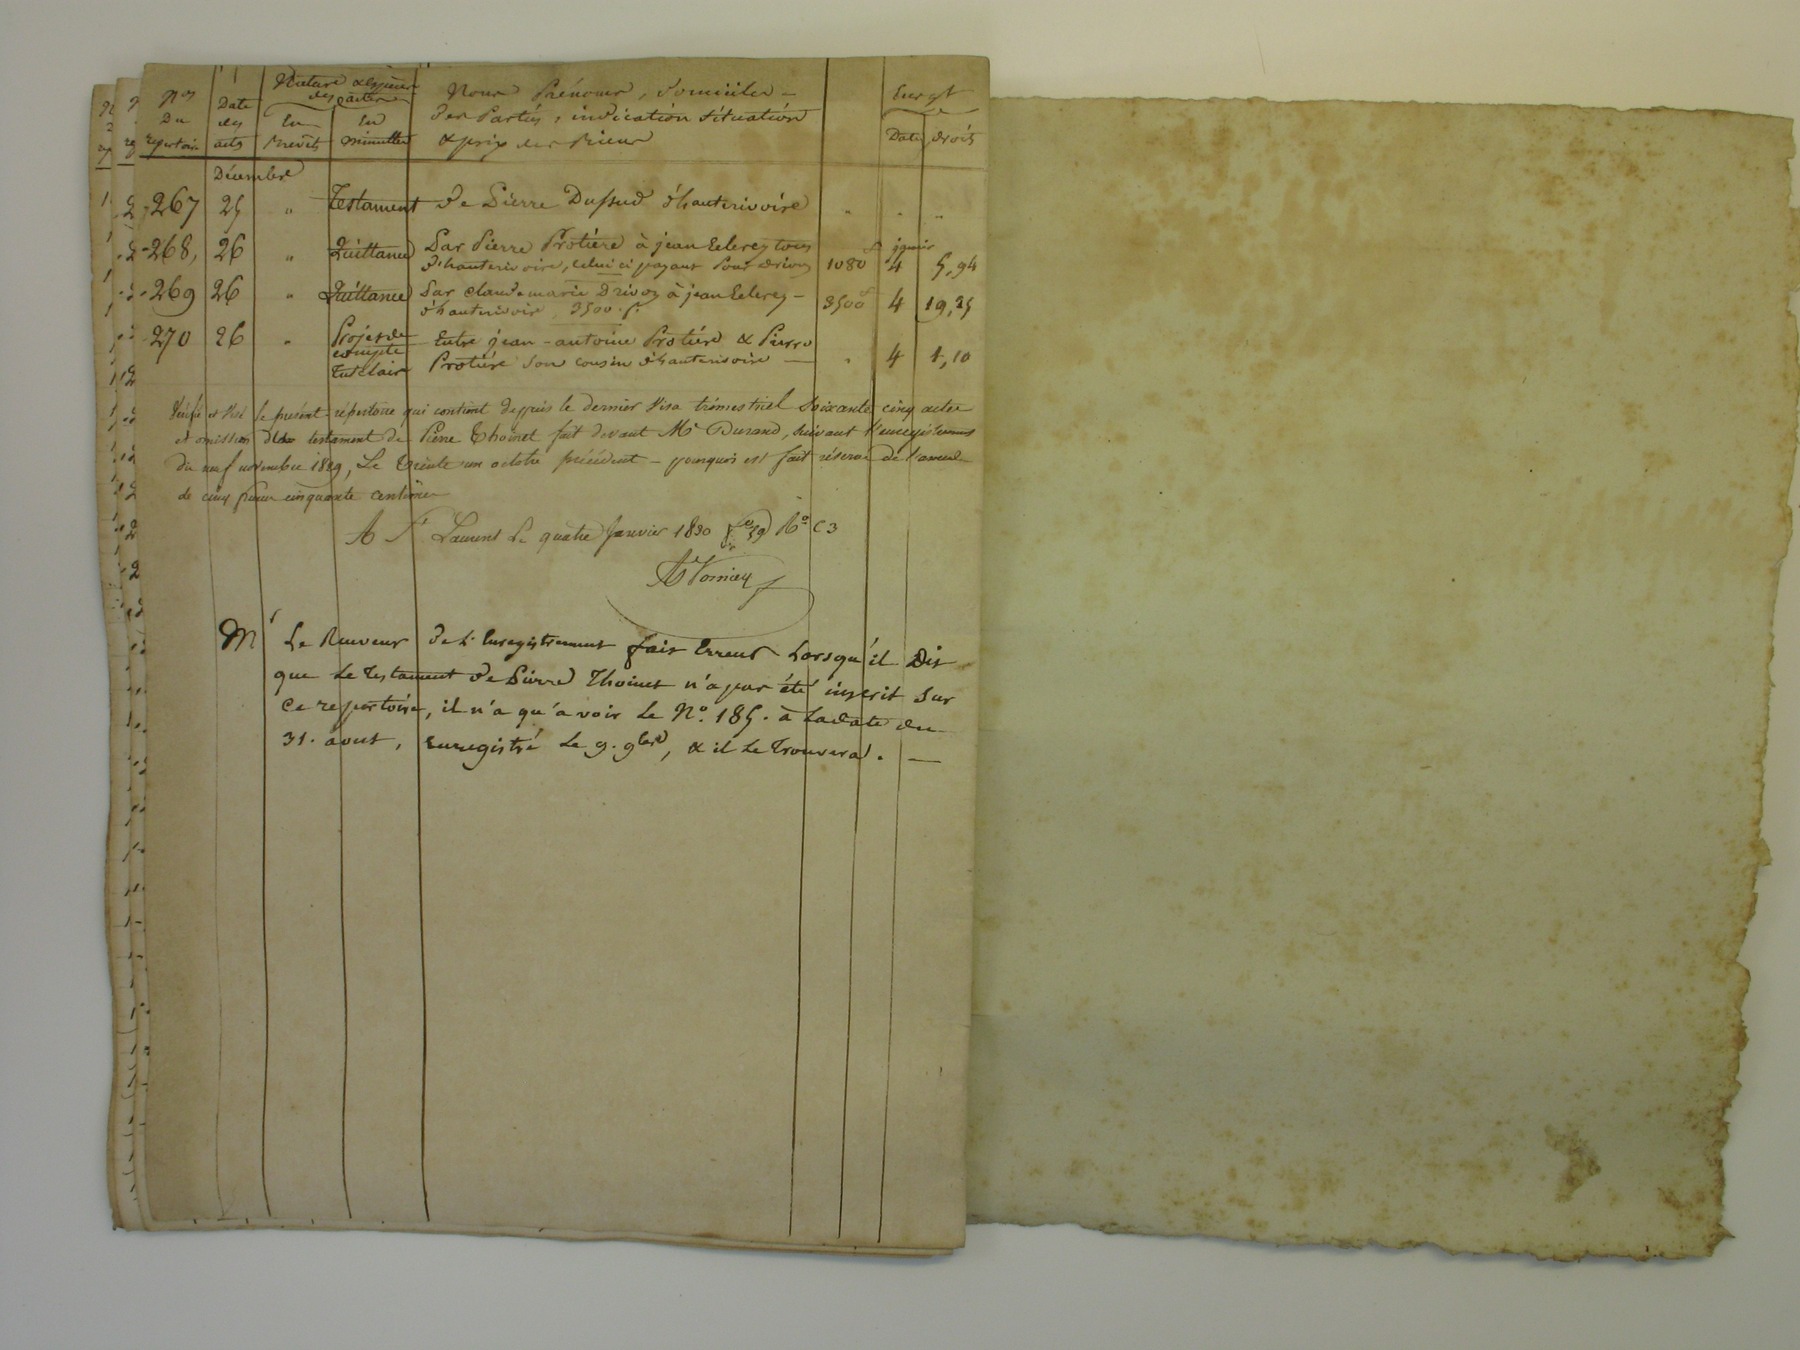 Nos Du repertoire
Date des actes
Nature & Espèces des actes
En Brevets
En minuttes
Noms Prénoms, Domiciles
Des Parties, indication Situation
& prix des Biens
Enregt
Date droits
Décembre
267 25 " Testament De Pierre Dussud d'hauterivoire " " "
268, 26 " Quittance Par Pierre Protière à jean Leclerc tous
d'hauterivoire, celui ci payant Pour Drivon 1080 f janvier 4 5,94
269 26 " Quittance Par Claude marie Drivon à jean Leclerc
d'hauterivoir 3500. f. 3500 f 4 19,25
270 26 " Projet de compte Tutelair Entre jean-antoine Protière & Pierre
Protière Son cousin d'hauterivoire " 4 1,10
Vérifié et Visé le présent répertoire qui contient depuis le dernier Visa trimestriel Soixante cinq actes
et omission du testament de Pierre Thoinet fait devant Me Durand, suivant l'enregistrement
du neuf novembre 1829, Le trente un octobre précédent - pourquoi est fait réserve de l'amende
de cinq francs cinquante centimes
A St Laurent Le quatre Janvier 1830 fo 39 Ro C 3
Me Le Receveur De L'Enregistrement fait Erreur Lorsqu'il Dit
que Le Testament De Pierre Thoinet n'a pas été inscrit Sur
Ce repertoire, il n'a qu'a voir Le No. 185. à La date du
31. aout, Enregistré Le 9. 9bre, & il Le Trouvera. —